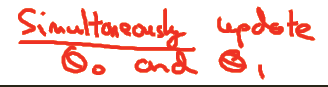 Simultaneously update
θ₀ and θ₁